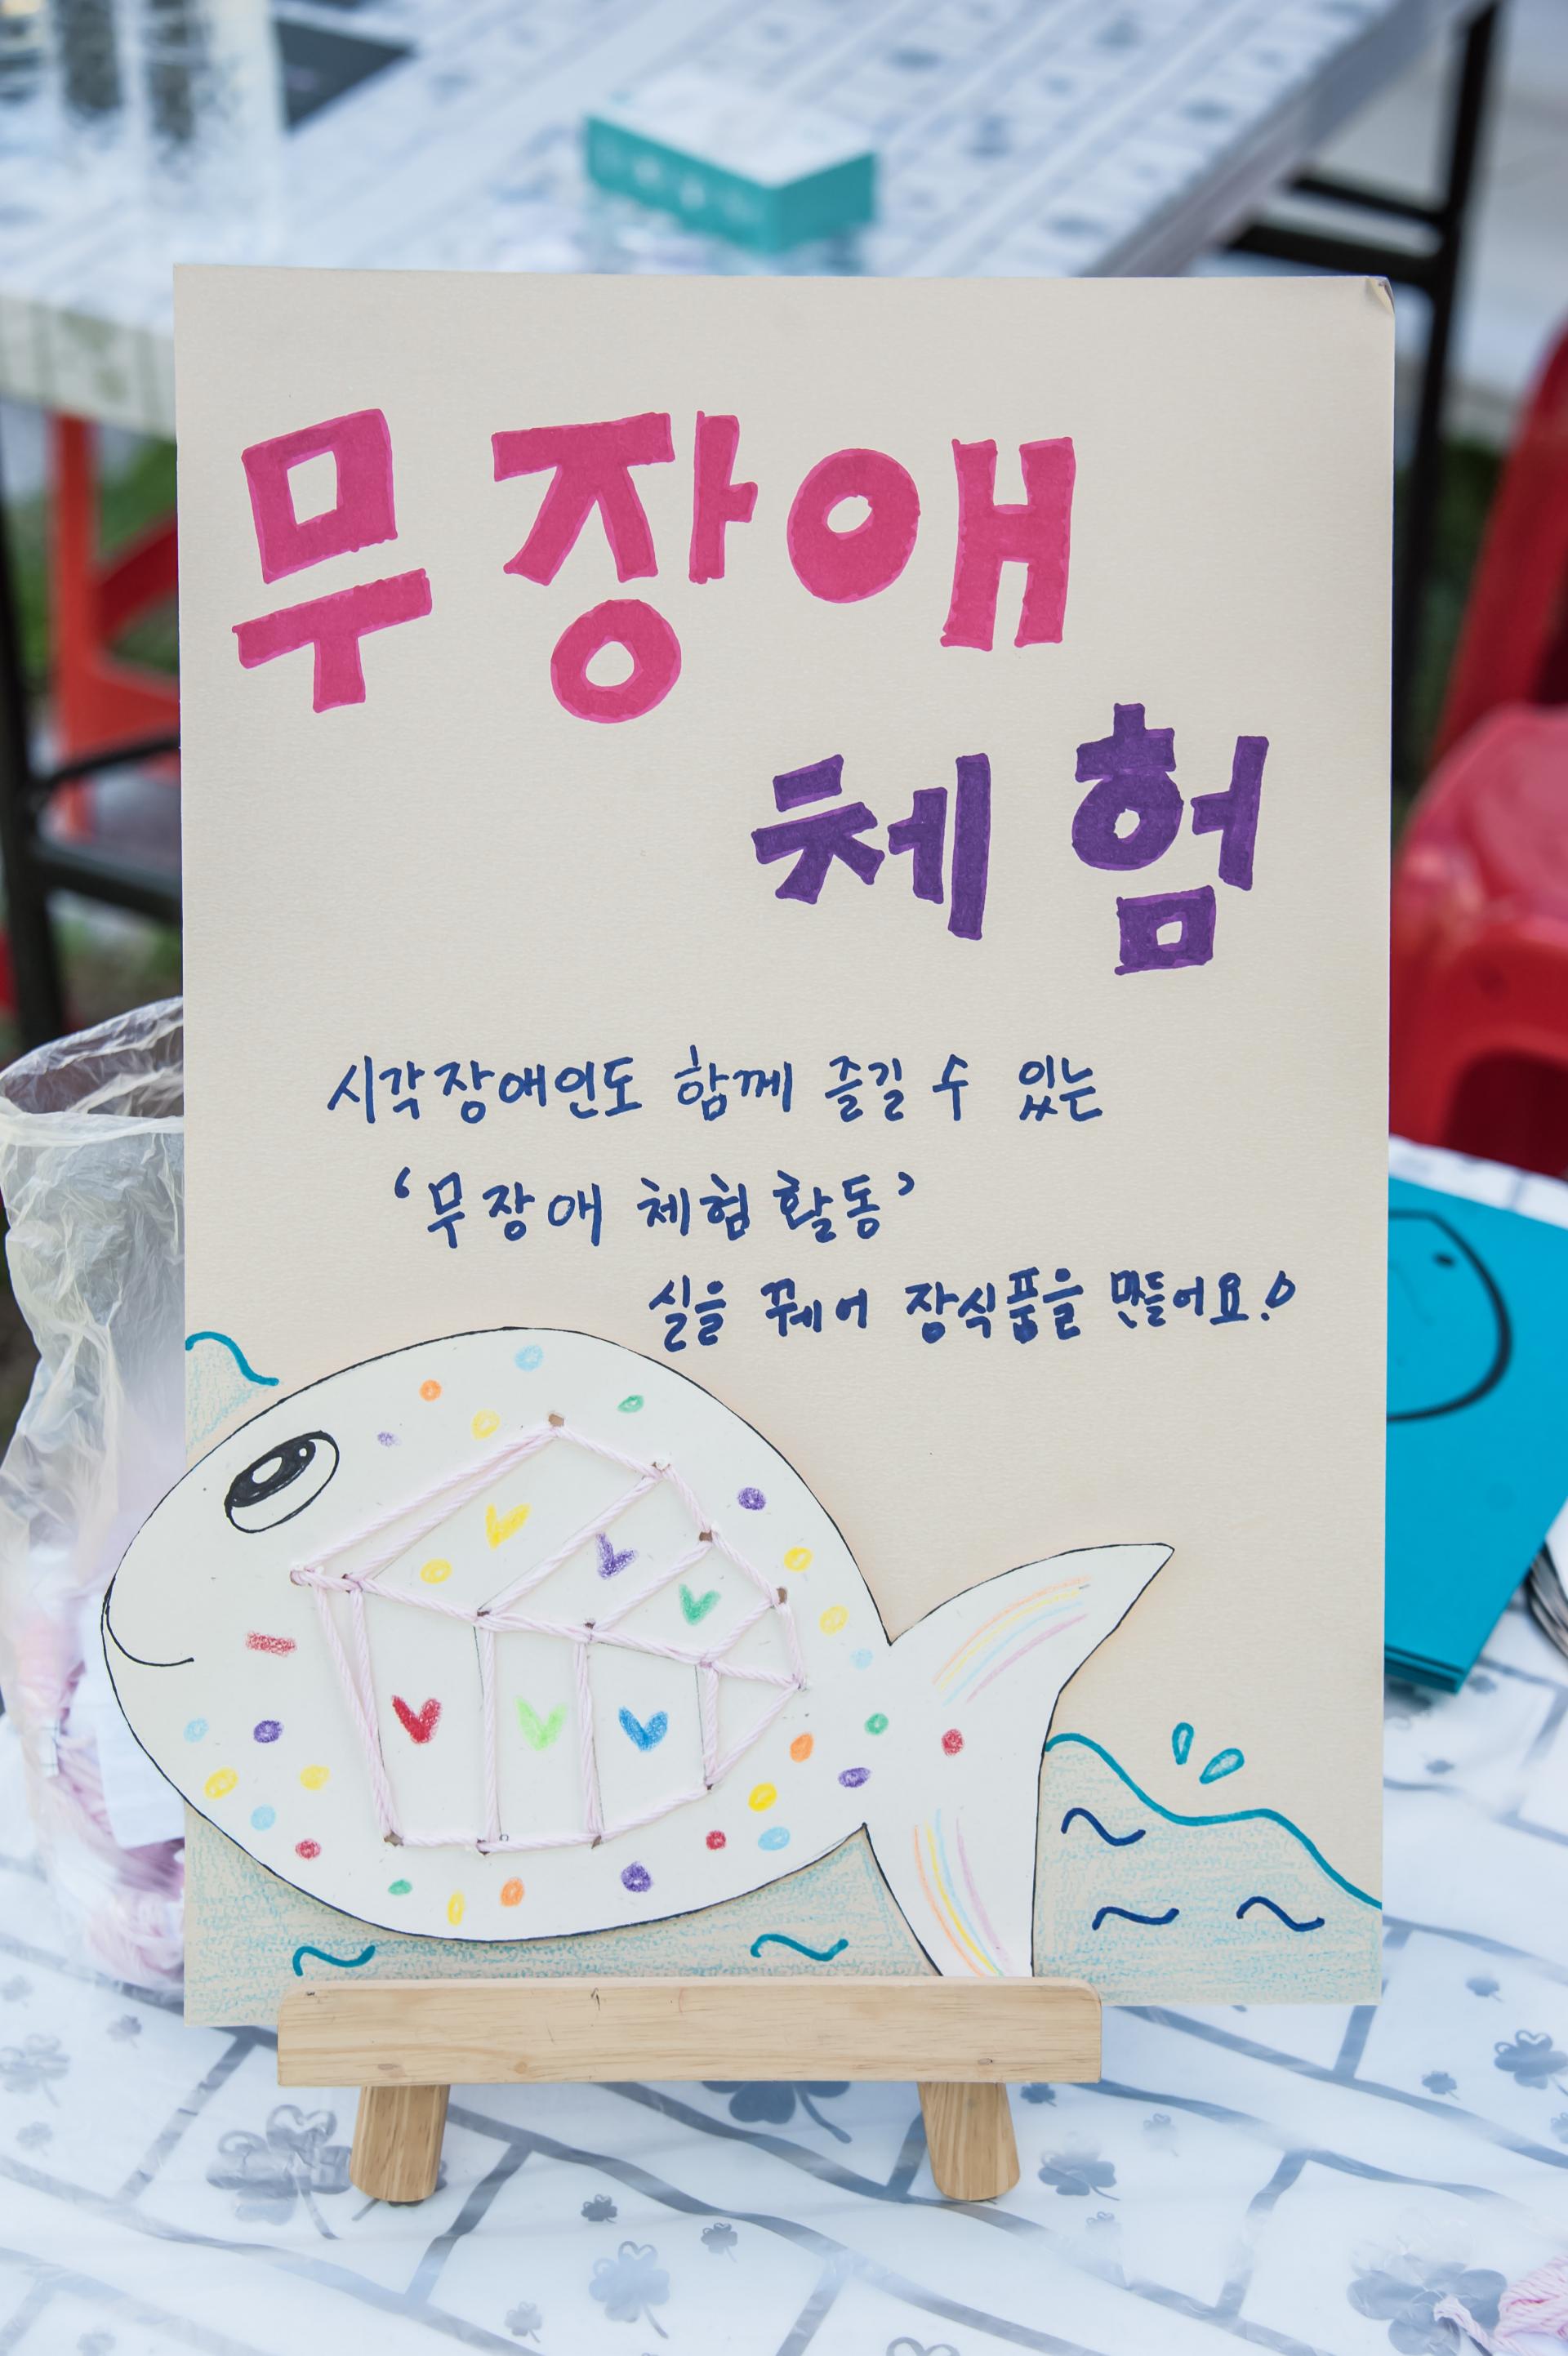 무장애
체험
시각장애인도 함께 즐길 수 있는
'무장애 체험 활동'
실을 꿰어 장식품을 만들어요!